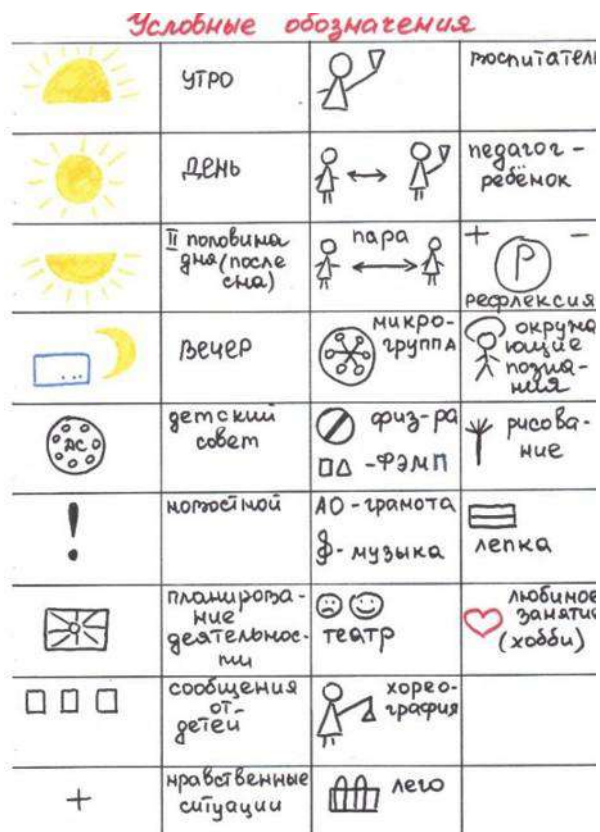 Условные обозначения
УТРО
воспитатель
ДЕНЬ
педагог -
ребёнок
II половина
дня (после
сна)
пара
+ -
Р
рефлексия
ВЕЧЕР
микро-
группА
окружа-
ющие
позна-
ния
ДС
детский
совет
физ-ра
-ФЭМП
рисова-
ние
!
новостной
АО-грамота
- музыка
лепка
планирова-
ние
деятельнос-
ти
театр
любимое
занятие
(хобби)
сообщения
от-
детей
хорео-
графия
+
нравственные
ситуации
лего